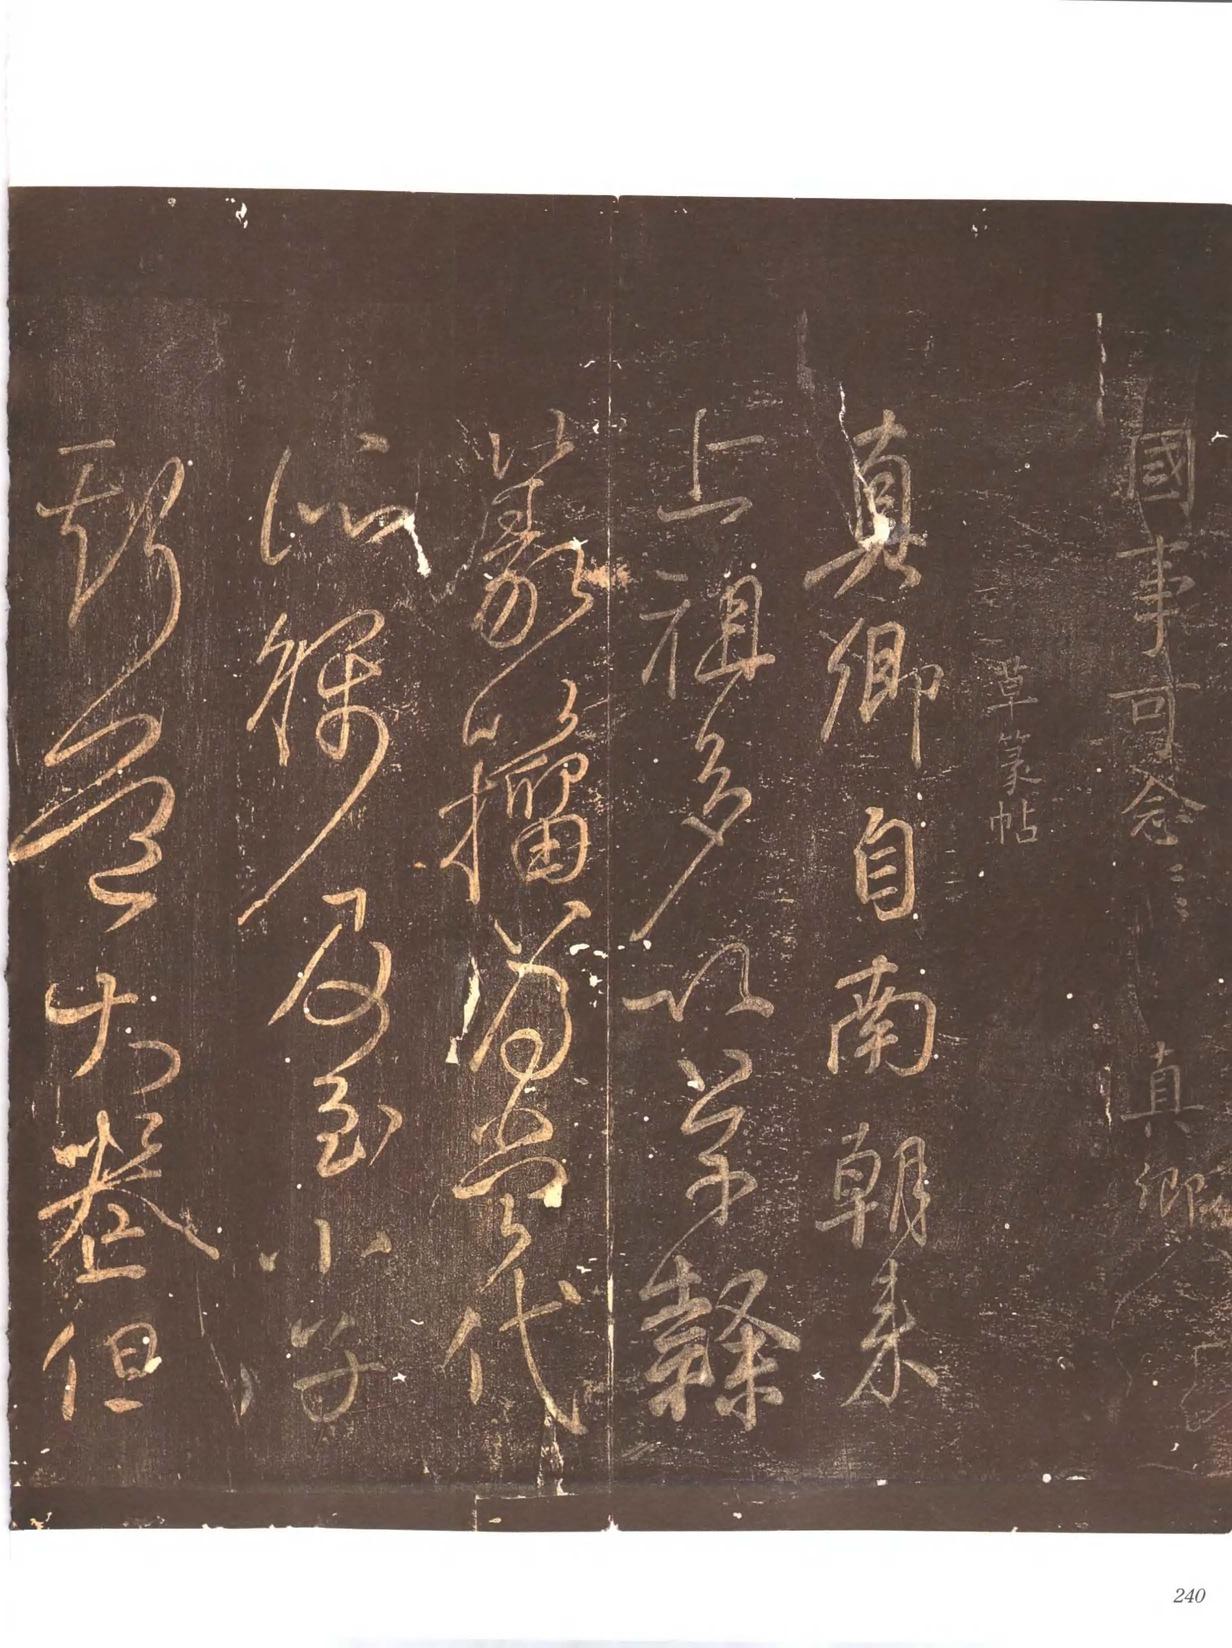 國事可念〻〻真卿
草篆帖
真卿自南朝来
上祖多以草隸
篆籀為當代
所稱及至小子
斯道大喪但
240